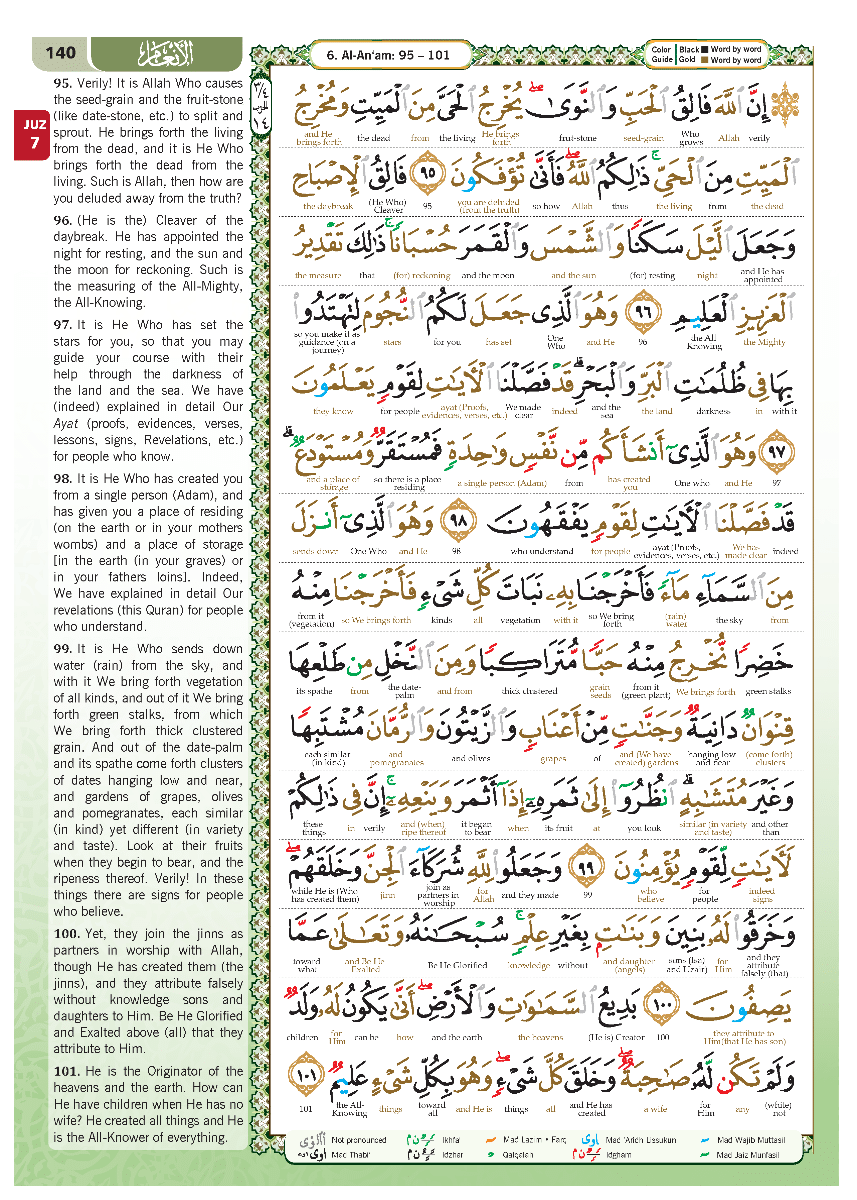 140
الأنعام
6. Al-An‘am: 95 – 101
Color Guide
Black Word by word
Gold Word by word
JUZ
7
95. Verily! It is Allah Who causes
the seed-grain and the fruit-stone
(like date-stone, etc.) to split and
sprout. He brings forth the living
from the dead, and it is He Who
brings forth the dead from the
living. Such is Allah, then how are
you deluded away from the truth?
96. (He is the) Cleaver of the
daybreak. He has appointed the
night for resting, and the sun and
the moon for reckoning. Such is
the measuring of the All-Mighty,
the All-Knowing.
97. It is He Who has set the
stars for you, so that you may
guide your course with their
help through the darkness of
the land and the sea. We have
(indeed) explained in detail Our
Ayat (proofs, evidences, verses,
lessons, signs, Revelations, etc.)
for people who know.
98. It is He Who has created you
from a single person (Adam), and
has given you a place of residing
(on the earth or in your mothers
wombs) and a place of storage
[in the earth (in your graves) or
in your fathers loins]. Indeed,
We have explained in detail Our
revelations (this Quran) for people
who understand.
99. It is He Who sends down
water (rain) from the sky, and
with it We bring forth vegetation
of all kinds, and out of it We bring
forth green stalks, from which
We bring forth thick clustered
grain. And out of the date-palm
and its spathe come forth clusters
of dates hanging low and near,
and gardens of grapes, olives
and pomegranates, each similar
(in kind) yet different (in variety
and taste). Look at their fruits
when they begin to bear, and the
ripeness thereof. Verily! In these
things there are signs for people
who believe.
100. Yet, they join the jinns as
partners in worship with Allah,
though He has created them (the
jinns), and they attribute falsely
without knowledge sons and
daughters to Him. Be He Glorified
and Exalted above (all) that they
attribute to Him.
101. He is the Originator of the
heavens and the earth. How can
He have children when He has no
wife? He created all things and He
is the All-Knower of everything.
٣/٤
الحزب
١٤
إِنَّ اللَّهَ فَالِقُ الْحَبِّ وَالنَّوَىٰ ۖ يُخْرِجُ الْحَيَّ مِنَ الْمَيِّتِ وَمُخْرِجُ
and He brings forth the dead from the living He brings forth fruit-stone seed-grain Who grows Allah verily
الْمَيِّتِ مِنَ الْحَيِّ ۚ ذَٰلِكُمُ اللَّهُ ۖ فَأَنَّىٰ تُؤْفَكُونَ ٩٥ فَالِقُ الْإِصْبَاحِ
the daybreak (He Who) Cleaver 95 you are deluded (from the truth) so how Allah thus the living from the dead
وَجَعَلَ اللَّيْلَ سَكَنًا وَالشَّمْسَ وَالْقَمَرَ حُسْبَانًا ۚ ذَٰلِكَ تَقْدِيرُ
the measure that (for) reckoning and the moon and the sun (for) resting night and He has appointed
الْعَزِيزِ الْعَلِيمِ ٩٦ وَهُوَ الَّذِي جَعَلَ لَكُمُ النُّجُومَ لِتَهْتَدُوا
so you make it as guidance (on a journey) stars for you has set One Who and He 96 the All Knowing the Mighty
بِهَا فِي ظُلُمَاتِ الْبَرِّ وَالْبَحْرِ ۗ قَدْ فَصَّلْنَا الْآيَاتِ لِقَوْمٍ يَعْلَمُونَ
they know for people ayat (Proofs, evidences, verses, etc.) We made clear indeed and the sea the land darkness in with it
٩٧ وَهُوَ الَّذِي أَنْشَأَكُمْ مِنْ نَفْسٍ وَاحِدَةٍ فَمُسْتَقَرٌّ وَمُسْتَوْدَعٌ ۗ
and a place of storage so there is a place residing a single person (Adam) from has created you One who and He 97
قَدْ فَصَّلْنَا الْآيَاتِ لِقَوْمٍ يَفْقَهُونَ ٩٨ وَهُوَ الَّذِي أَنْزَلَ
sends down One Who and He 98 who understand for people ayat (Proofs, evidences, verses, etc.) We has made clear indeed
مِنَ السَّمَاءِ مَاءً فَأَخْرَجْنَا بِهِ نَبَاتَ كُلِّ شَيْءٍ فَأَخْرَجْنَا مِنْهُ
from it (vegetation) so We brings forth kinds all vegetation with it so We bring forth (rain) water the sky from
خَضِرًا نُخْرِجُ مِنْهُ حَبًّا مُتَرَاكِبًا وَمِنَ النَّخْلِ مِنْ طَلْعِهَا
its spathe from the date-palm and from thick clustered grain seeds from it (green plant) We brings forth green stalks
قِنْوَانٌ دَانِيَةٌ وَجَنَّاتٍ مِنْ أَعْنَابٍ وَالزَّيْتُونَ وَالرُّمَّانَ مُشْتَبِهًا
each similar (in kind) and pomegranates and olives grapes of and (We have created) gardens hanging low and near (come forth) clusters
وَغَيْرَ مُتَشَابِهٍ ۗ انْظُرُوا إِلَىٰ ثَمَرِهِ إِذَا أَثْمَرَ وَيَنْعِهِ ۚ إِنَّ فِي ذَٰلِكُمْ
these things in verily and (when) ripe thereof it began to bear when its fruit at you look similar (in variety and taste) and other than
لَآيَاتٍ لِقَوْمٍ يُؤْمِنُونَ ٩٩ وَجَعَلُوا لِلَّهِ شُرَكَاءَ الْجِنَّ وَخَلَقَهُمْ ۖ
while He is (Who has created them) jinn join as partners in worship for Allah and they made 99 who believe for people indeed signs
وَخَرَقُوا لَهُ بَنِينَ وَبَنَاتٍ بِغَيْرِ عِلْمٍ ۚ سُبْحَانَهُ وَتَعَالَىٰ عَمَّا
toward what and Be He Exalted Be He Glorified knowledge without and daughter (angels) sons (Isa) and Uzair) for Him and they attribute falsely (that)
يَصِفُونَ ١٠٠ بَدِيعُ السَّمَاوَاتِ وَالْأَرْضِ ۖ أَنَّىٰ يَكُونُ لَهُ وَلَدٌ
children for Him can be how and the earth the heavens (He is) Creator 100 they attribute to Him(that He has son)
وَلَمْ تَكُنْ لَهُ صَاحِبَةٌ ۖ وَخَلَقَ كُلَّ شَيْءٍ ۖ وَهُوَ بِكُلِّ شَيْءٍ عَلِيمٌ ١٠١
101 the All-Knowing things toward all and He is things all and He has created a wife for Him any (while) not
Not pronounced Ikhfa' Mad Lazim • Farq Mad 'Aridh Lissukun Mad Wajib Muttasil
Mad Thabi'i Idzhar Qalqalah Idgham Mad Jaiz Munfasil